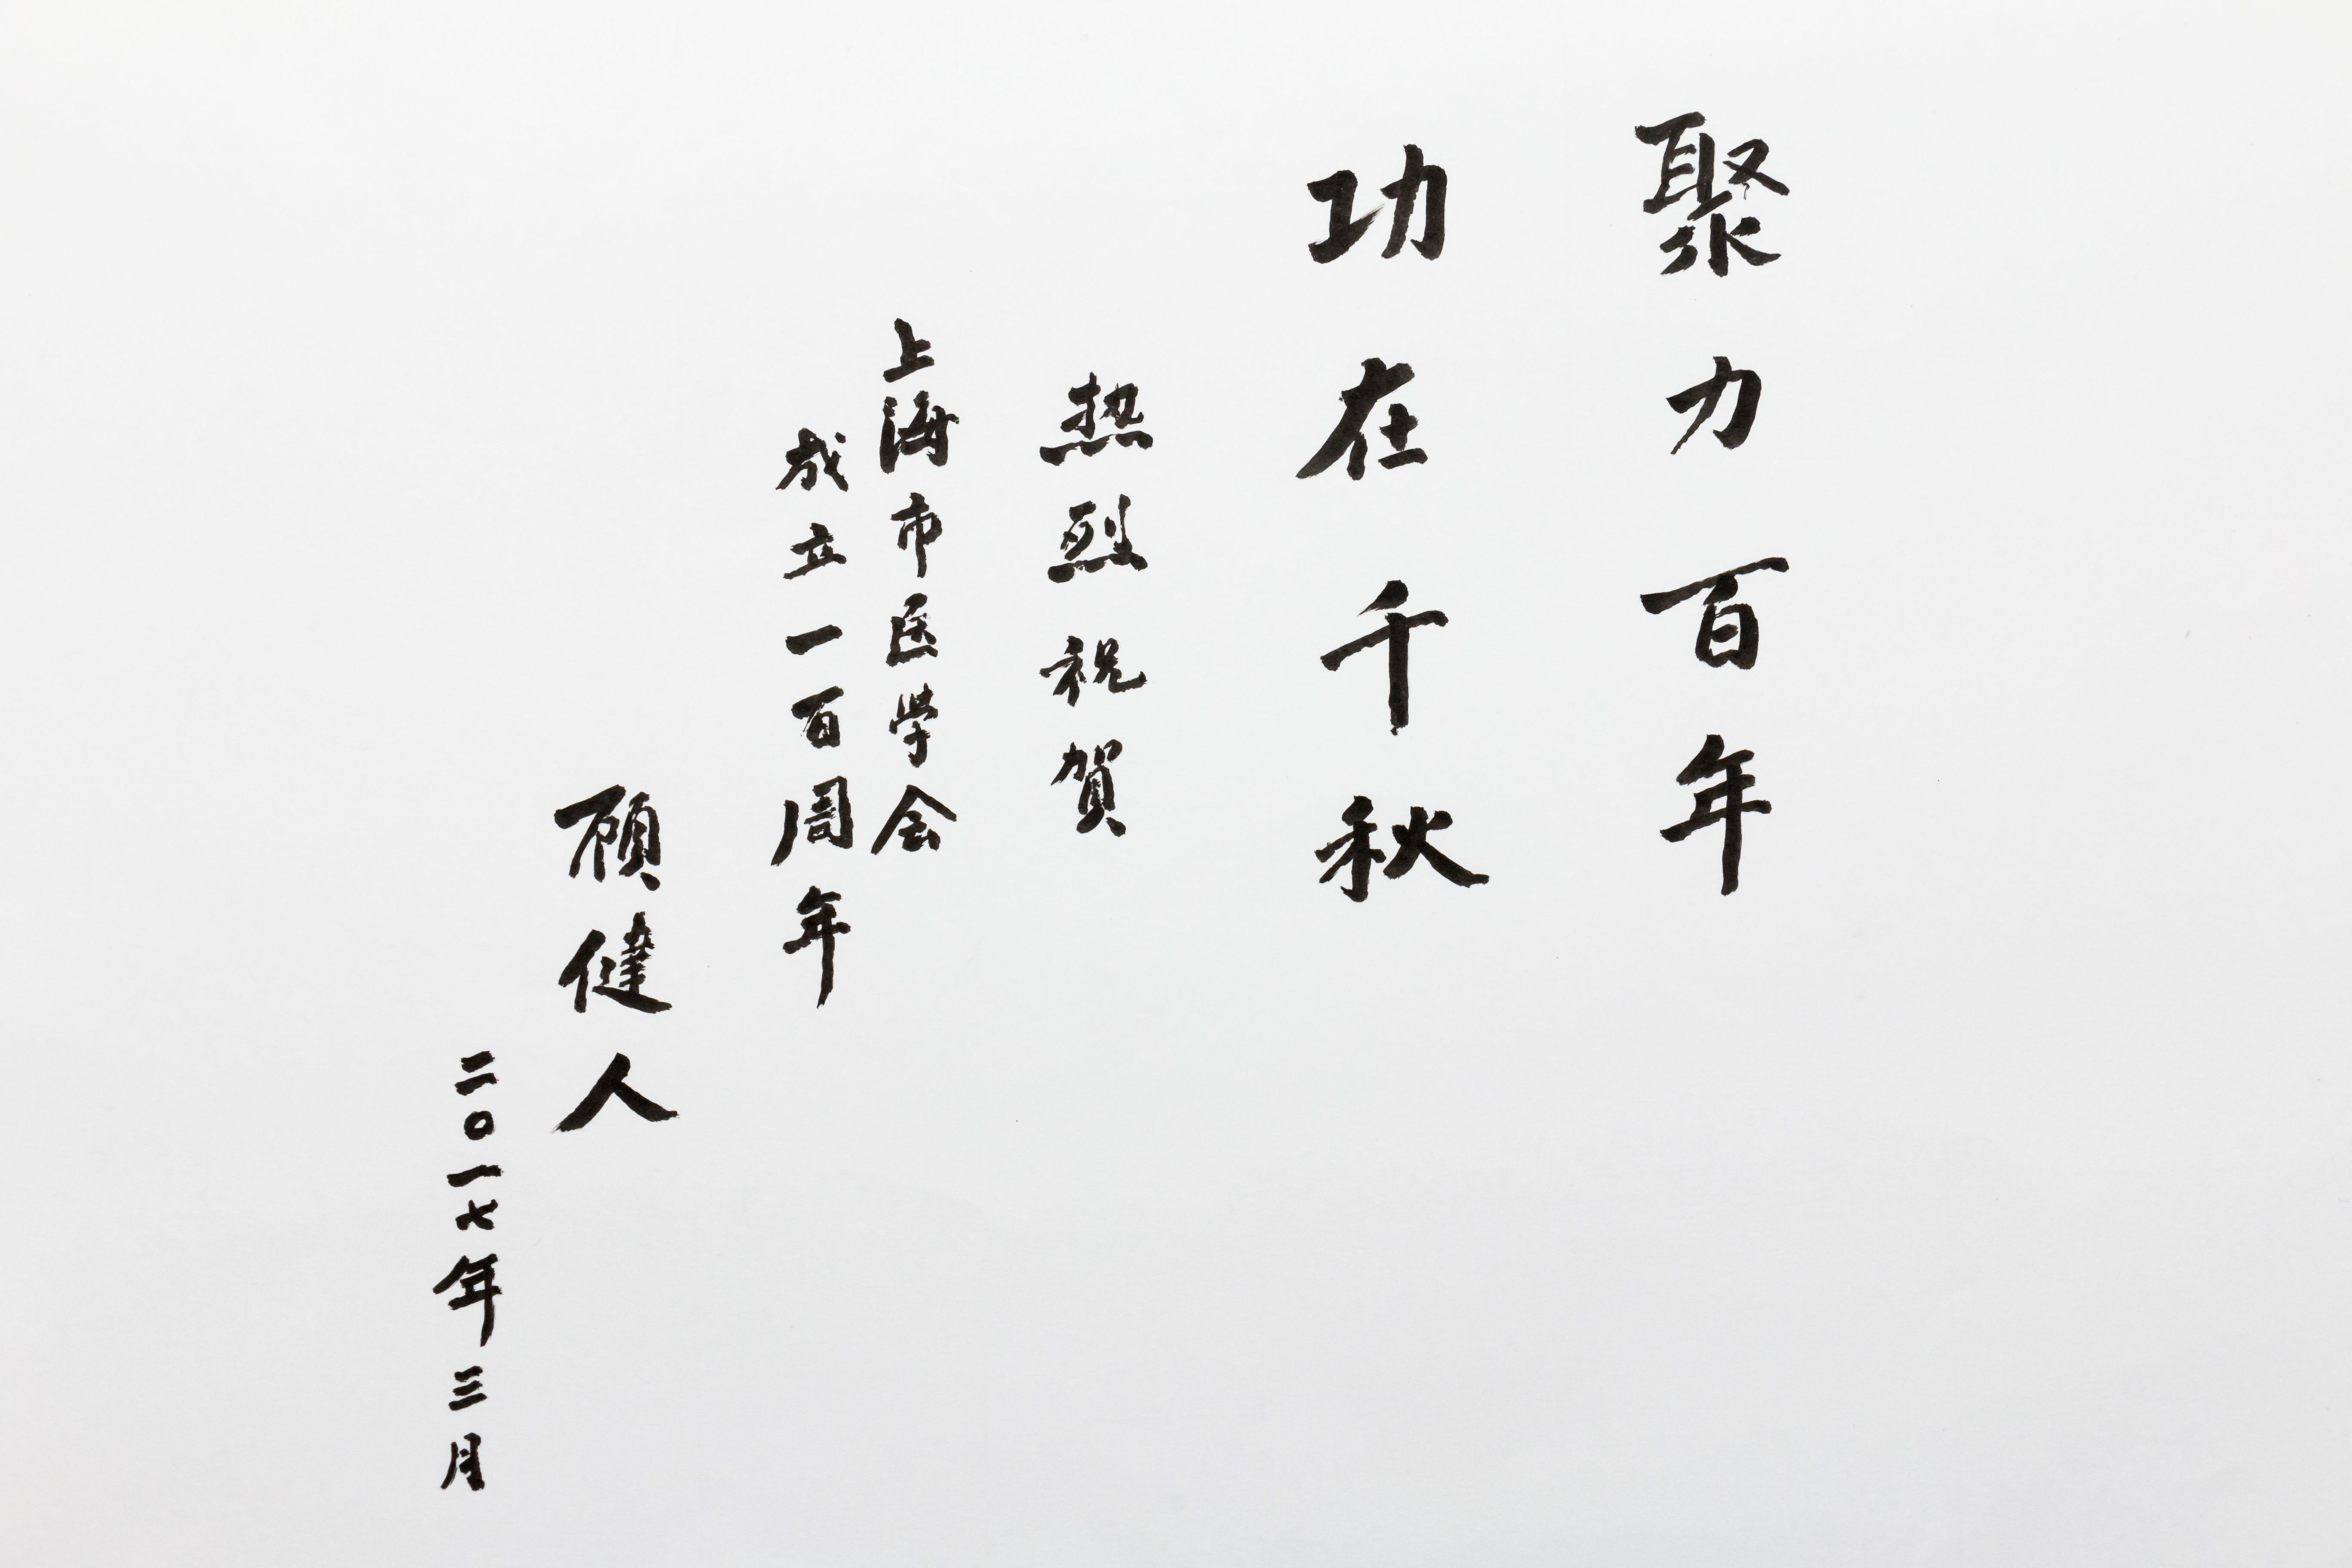 聚力百年
功在千秋
热烈祝賀
上海市医学会
成立一百周年
顾健人
二〇一七年三月